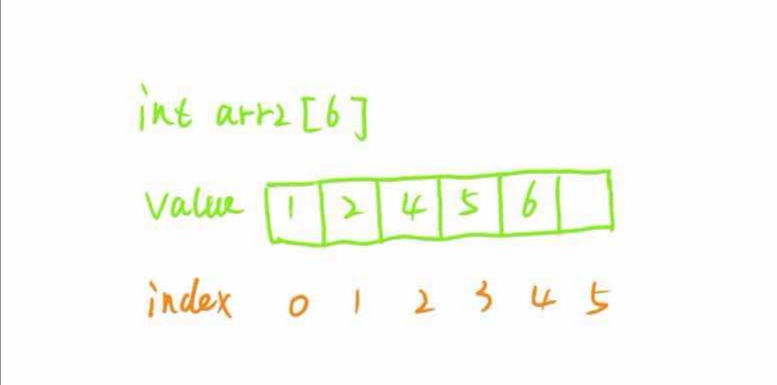 int arr2[6]
value 1 2 4 5 6
index 0 1 2 3 4 5